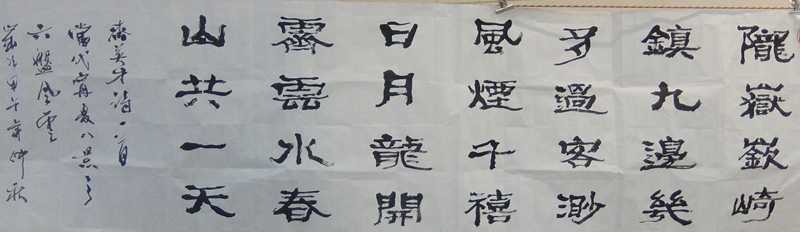 隴嶽嶔崎
鎮九邊幾
多過客渺
風煙千禧
日月龍開
霽雲水春
山共一天
詩一首
當代寧夏八景之
六盤風雲
歲次甲午年仲秋